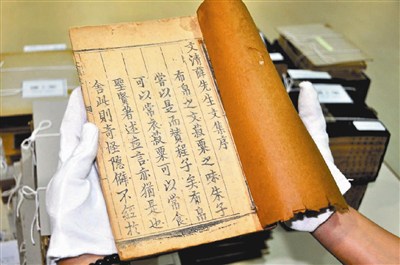 文清薛先生文集序
布帛之文菽粟之味朱子
嘗以是而贊程子矣布帛
可以常衣菽粟可以常食
聖賢著述立言亦猶是也
舍此則奇怪隱僻不經於